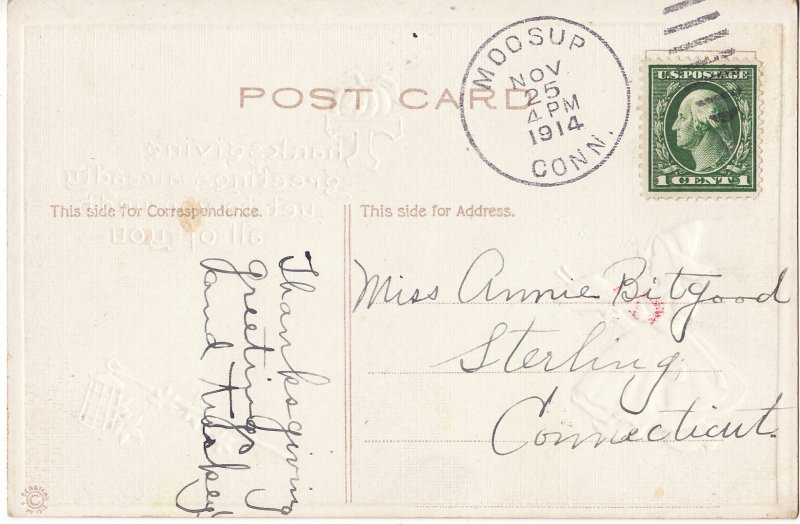 MOOSUP
NOV
25
4 PM
1914
CONN.
U.S. POSTAGE
1 CENT 1
POST CARD
This side for Correspondence.
This side for Address.
Thanksgiving
greetings
and
Miss Annie Bitgood
Sterling,
Connecticut.